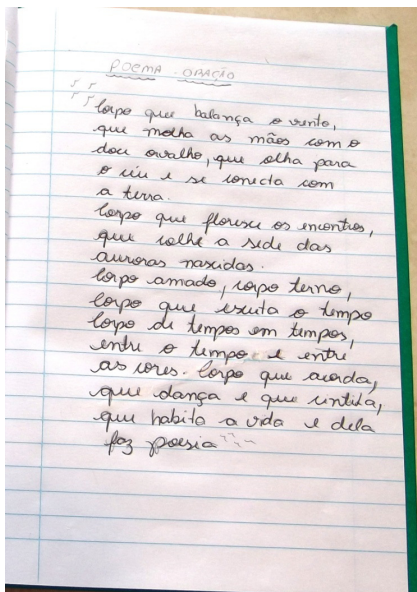 POEMA - ORAÇÃO
Corpo que balança o vento,
que molha as mãos com o
doce orvalho, que olha para
o céu e se conecta com
a terra.
Corpo que floresce os encontros,
que colhe a sede das
auroras nascidas.
Corpo amado, corpo terno,
Corpo que escuta o tempo
Corpo de tempos em tempos,
entre o tempo e entre
as cores. Corpo que acorda,
que dança e que
que habita a vida e dela
faz poesia